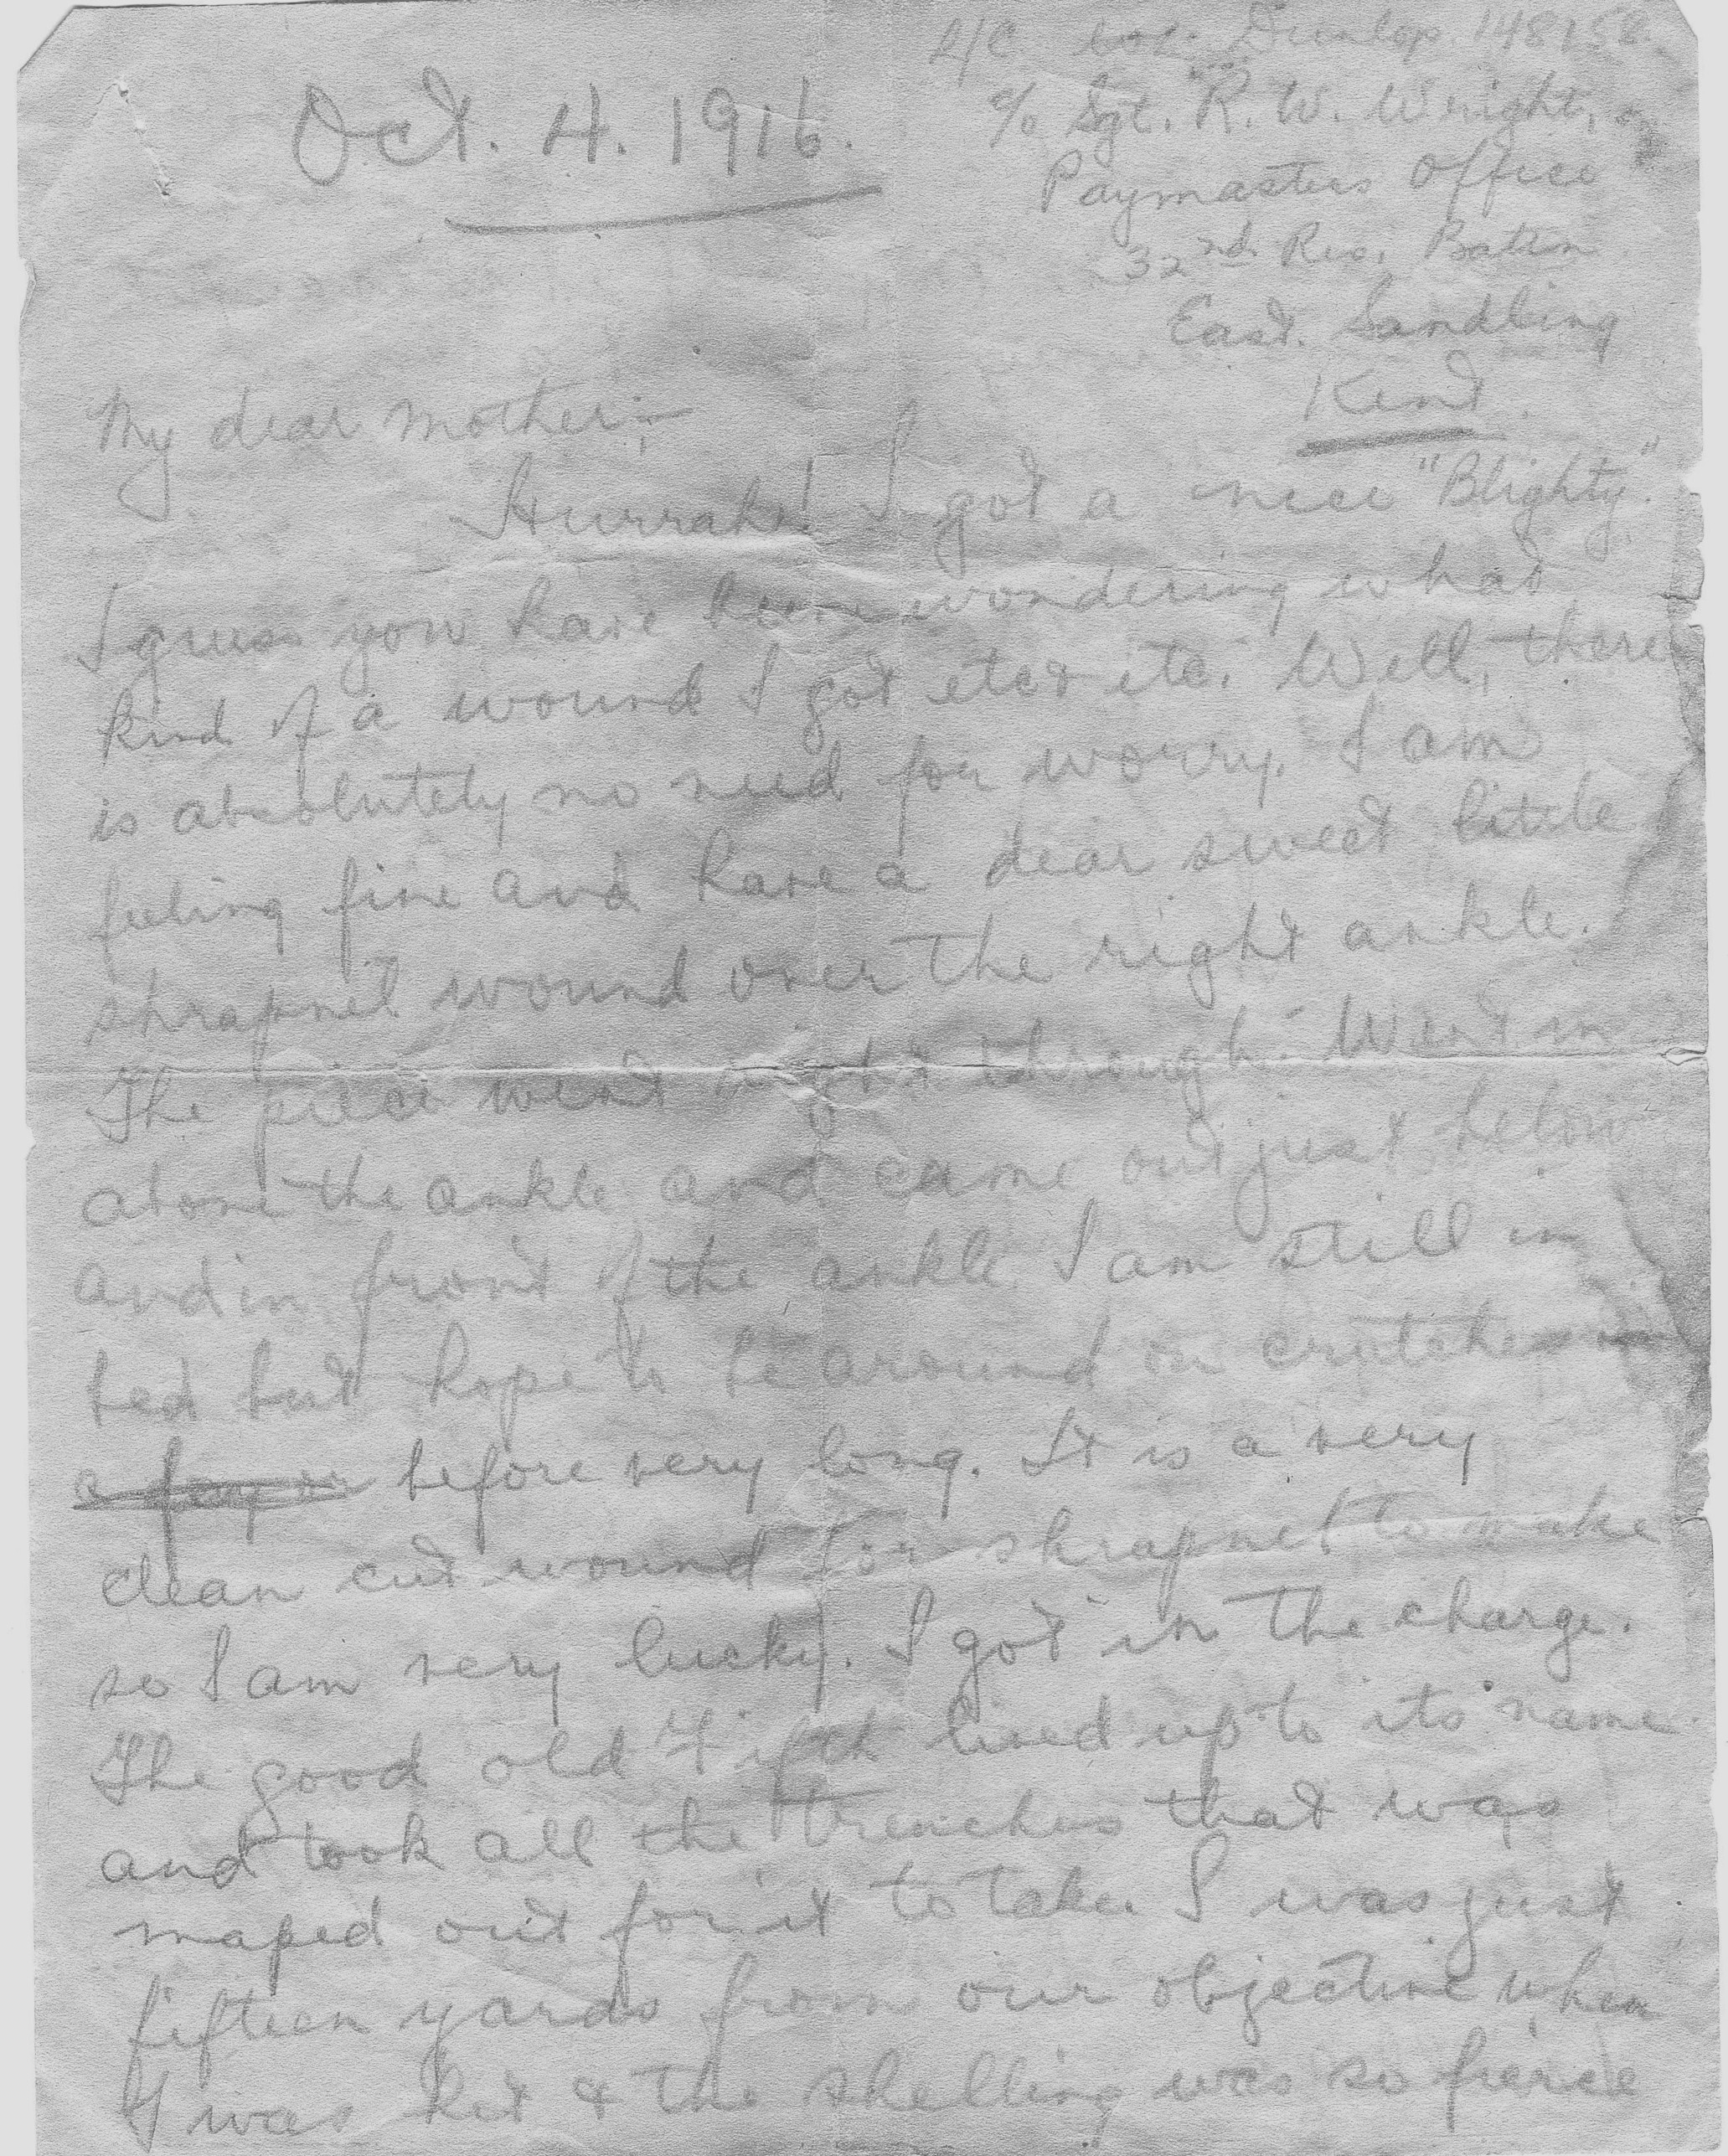 L/C Dunlop. 148158.
Oct. 4. 1916.
c/o Sgt. R. W. Wright,
Paymasters Office
32nd Res. Battn
East. Sandling
Kent.
My dear Mother:-
Hurrah! I got a nice "Blighty."
I guess you have been wondering what
kind of a wound I got etc & etc. Well, there
is absolutely no need for worry. I am
feeling fine and have a dear sweet little
shrapnel wound over the right ankle.
The piece went right through. Went in
above the ankle and came out just below
and in front of the ankle. I am still in
bed but hope to be around on crutches in
a before very long. It is a very
clean cut wound for shrapnel to make
so I am very lucky. I got in the charge.
The good old Fifth lived up to its name
and took all the trenches that was
maped out for it to take. I was just
fifteen yards from our objective when
I was hit & the shelling was so fierce